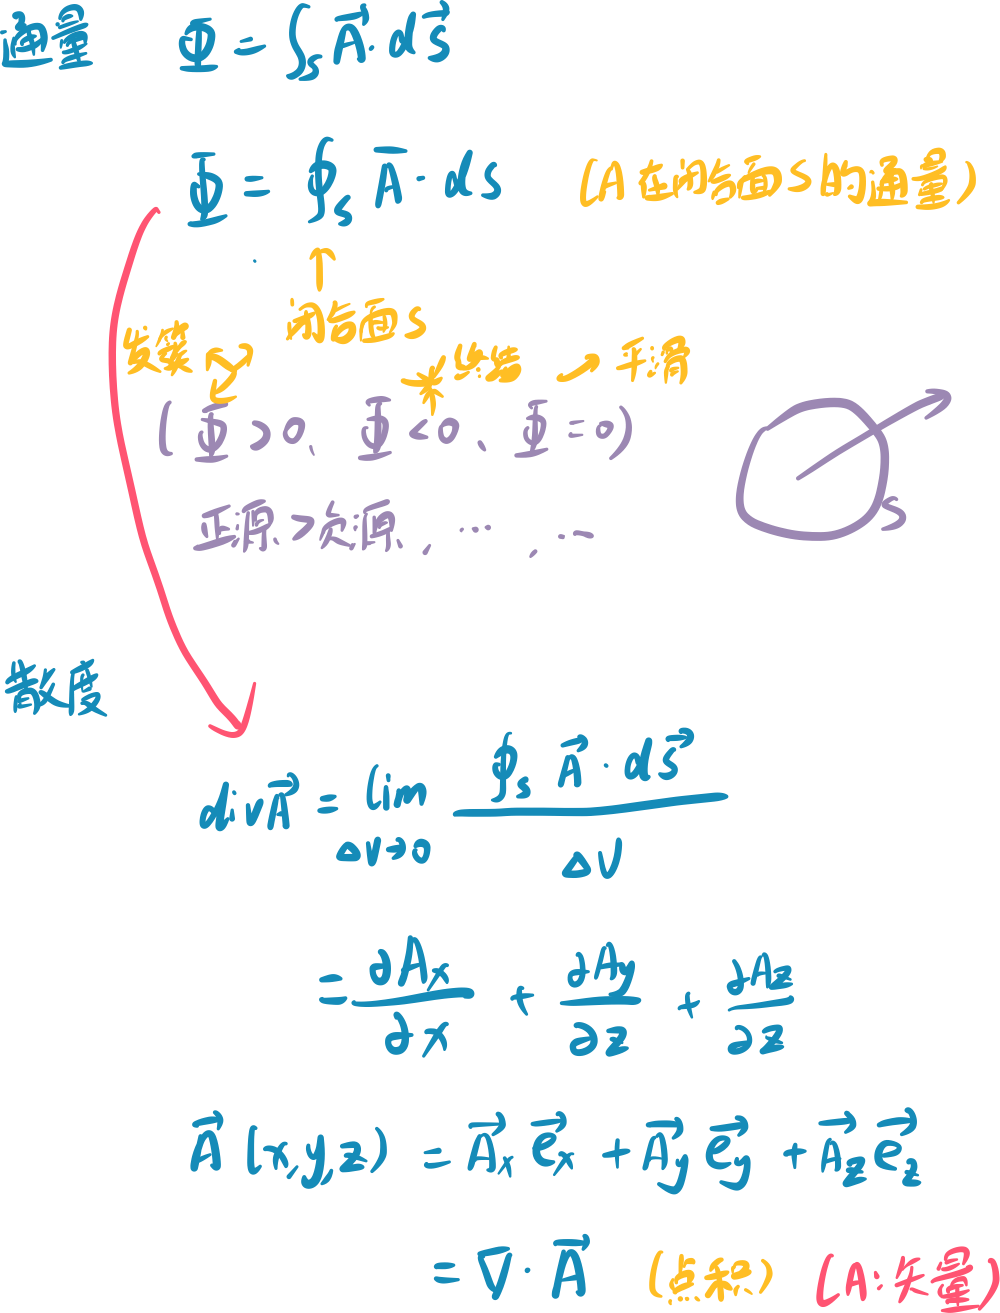 通量 Φ = ∫ₛ A⃗ · ds⃗
Φ = ∮ₛ A̅ · ds (A在闭合面S的通量)
↑
闭合面S
发 终结 → 平滑
(Φ > 0、Φ < 0、Φ = 0)
S
正源 > 负源, … , …
散度
divA⃗ = lim_{ΔV→0} ∮ₛ A⃗ · ds⃗ / ΔV
= ∂Aₓ/∂x + ∂A_y/∂z + ∂A_z/∂z
A⃗ (x,y,z) = A⃗ₓ e⃗ₓ + A⃗_y e⃗_y + A⃗_z e⃗_z
= ∇ · A⃗ (点积) (A:矢量)